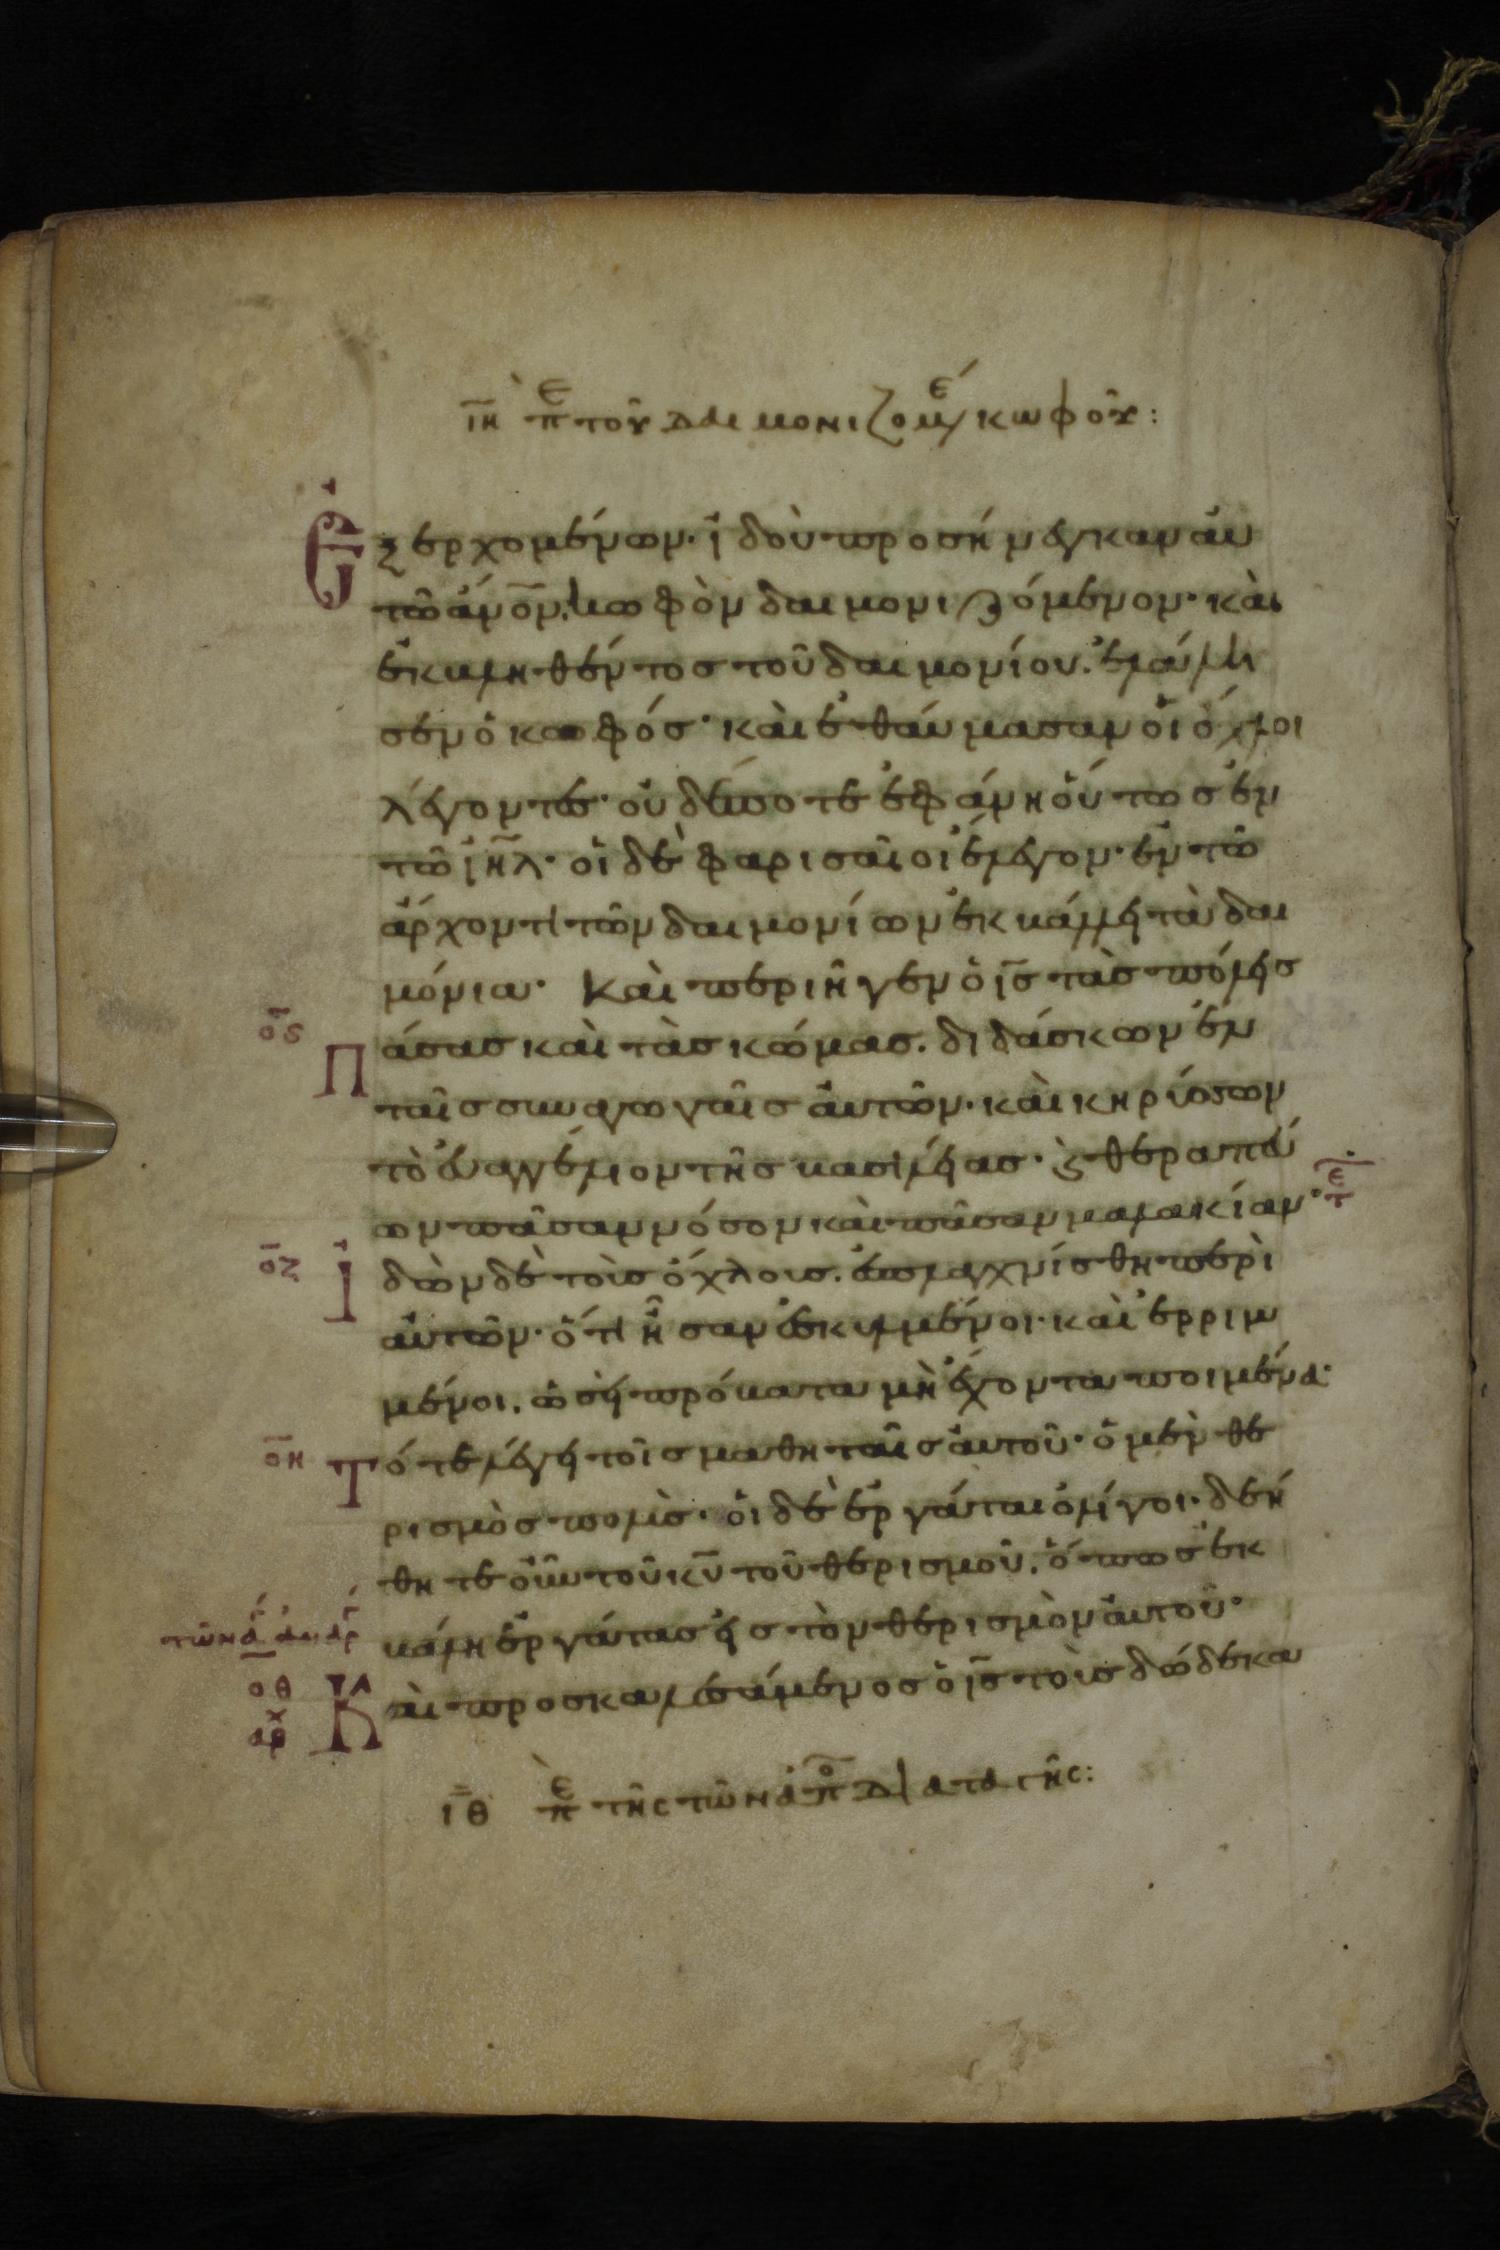 ιη πε του δαιμονιζομε κωφου:
Εξερχομένων· ἰδοὺ προσήνεγκαν αὐ
τῶ ἄνον, κωφὸν δαιμονιζόμενον· καὶ
ἐκβληθέντος τοῦ δαιμονίου. ἐλάλη
σεν ὁ κωφός· καὶ ἐθαύμασαν οἱ ὄχλοι
λέγοντες· οὐδέποτε ἐφάνη οὕτως ἐν
τῶ ιηλ· οἱ δὲ φαρισαῖοι ἔλεγον· ἐν τῶ
ἄρχοντι τῶν δαιμονίων ἐκβάλλει τὰ δαι
μόνια· Καὶ περιῆγεν ὁ ις τὰς πόλεις
ος Πάσας καὶ τὰς κώμας. διδάσκων ἐν
ταῖς συναγωγαῖς αὐτῶν· καὶ κηρύσσων
τὸ εὐαγγέλιον τῆς βασιλείας· ϛ θεραπεύ
ων πᾶσαν νόσον καὶ πᾶσαν μαλακίαν· τε
οζ Ἰδὼν δὲ τοὺς ὄχλους. ἐσπλαγχνίσθη περὶ
αὐτῶν· ὅτι ἦσαν ἐσκυλμένοι· καὶ ἐρριμ
μένοι. ὡσεὶ πρόβατα μὴ ἔχοντα ποιμένα·
οη Τότε λέγει τοῖς μαθηταῖς αὐτοῦ· ὁ μὲν θε
ρισμὸς πολὺς· οἱ δὲ ἐργάται ὀλίγοι· δεή
θητε οὖν τοῦ κυ τοῦ θερισμοῦ. ὅπως ἐκ
βάλη ἐργάτας εἰς τὸν θερισμὸν αὐτοῦ·
οθ αρχ Καὶ προσκαλεσάμενος ὁ ις τοὺς δώδεκα
ιθ πε της των απο διαταγης: